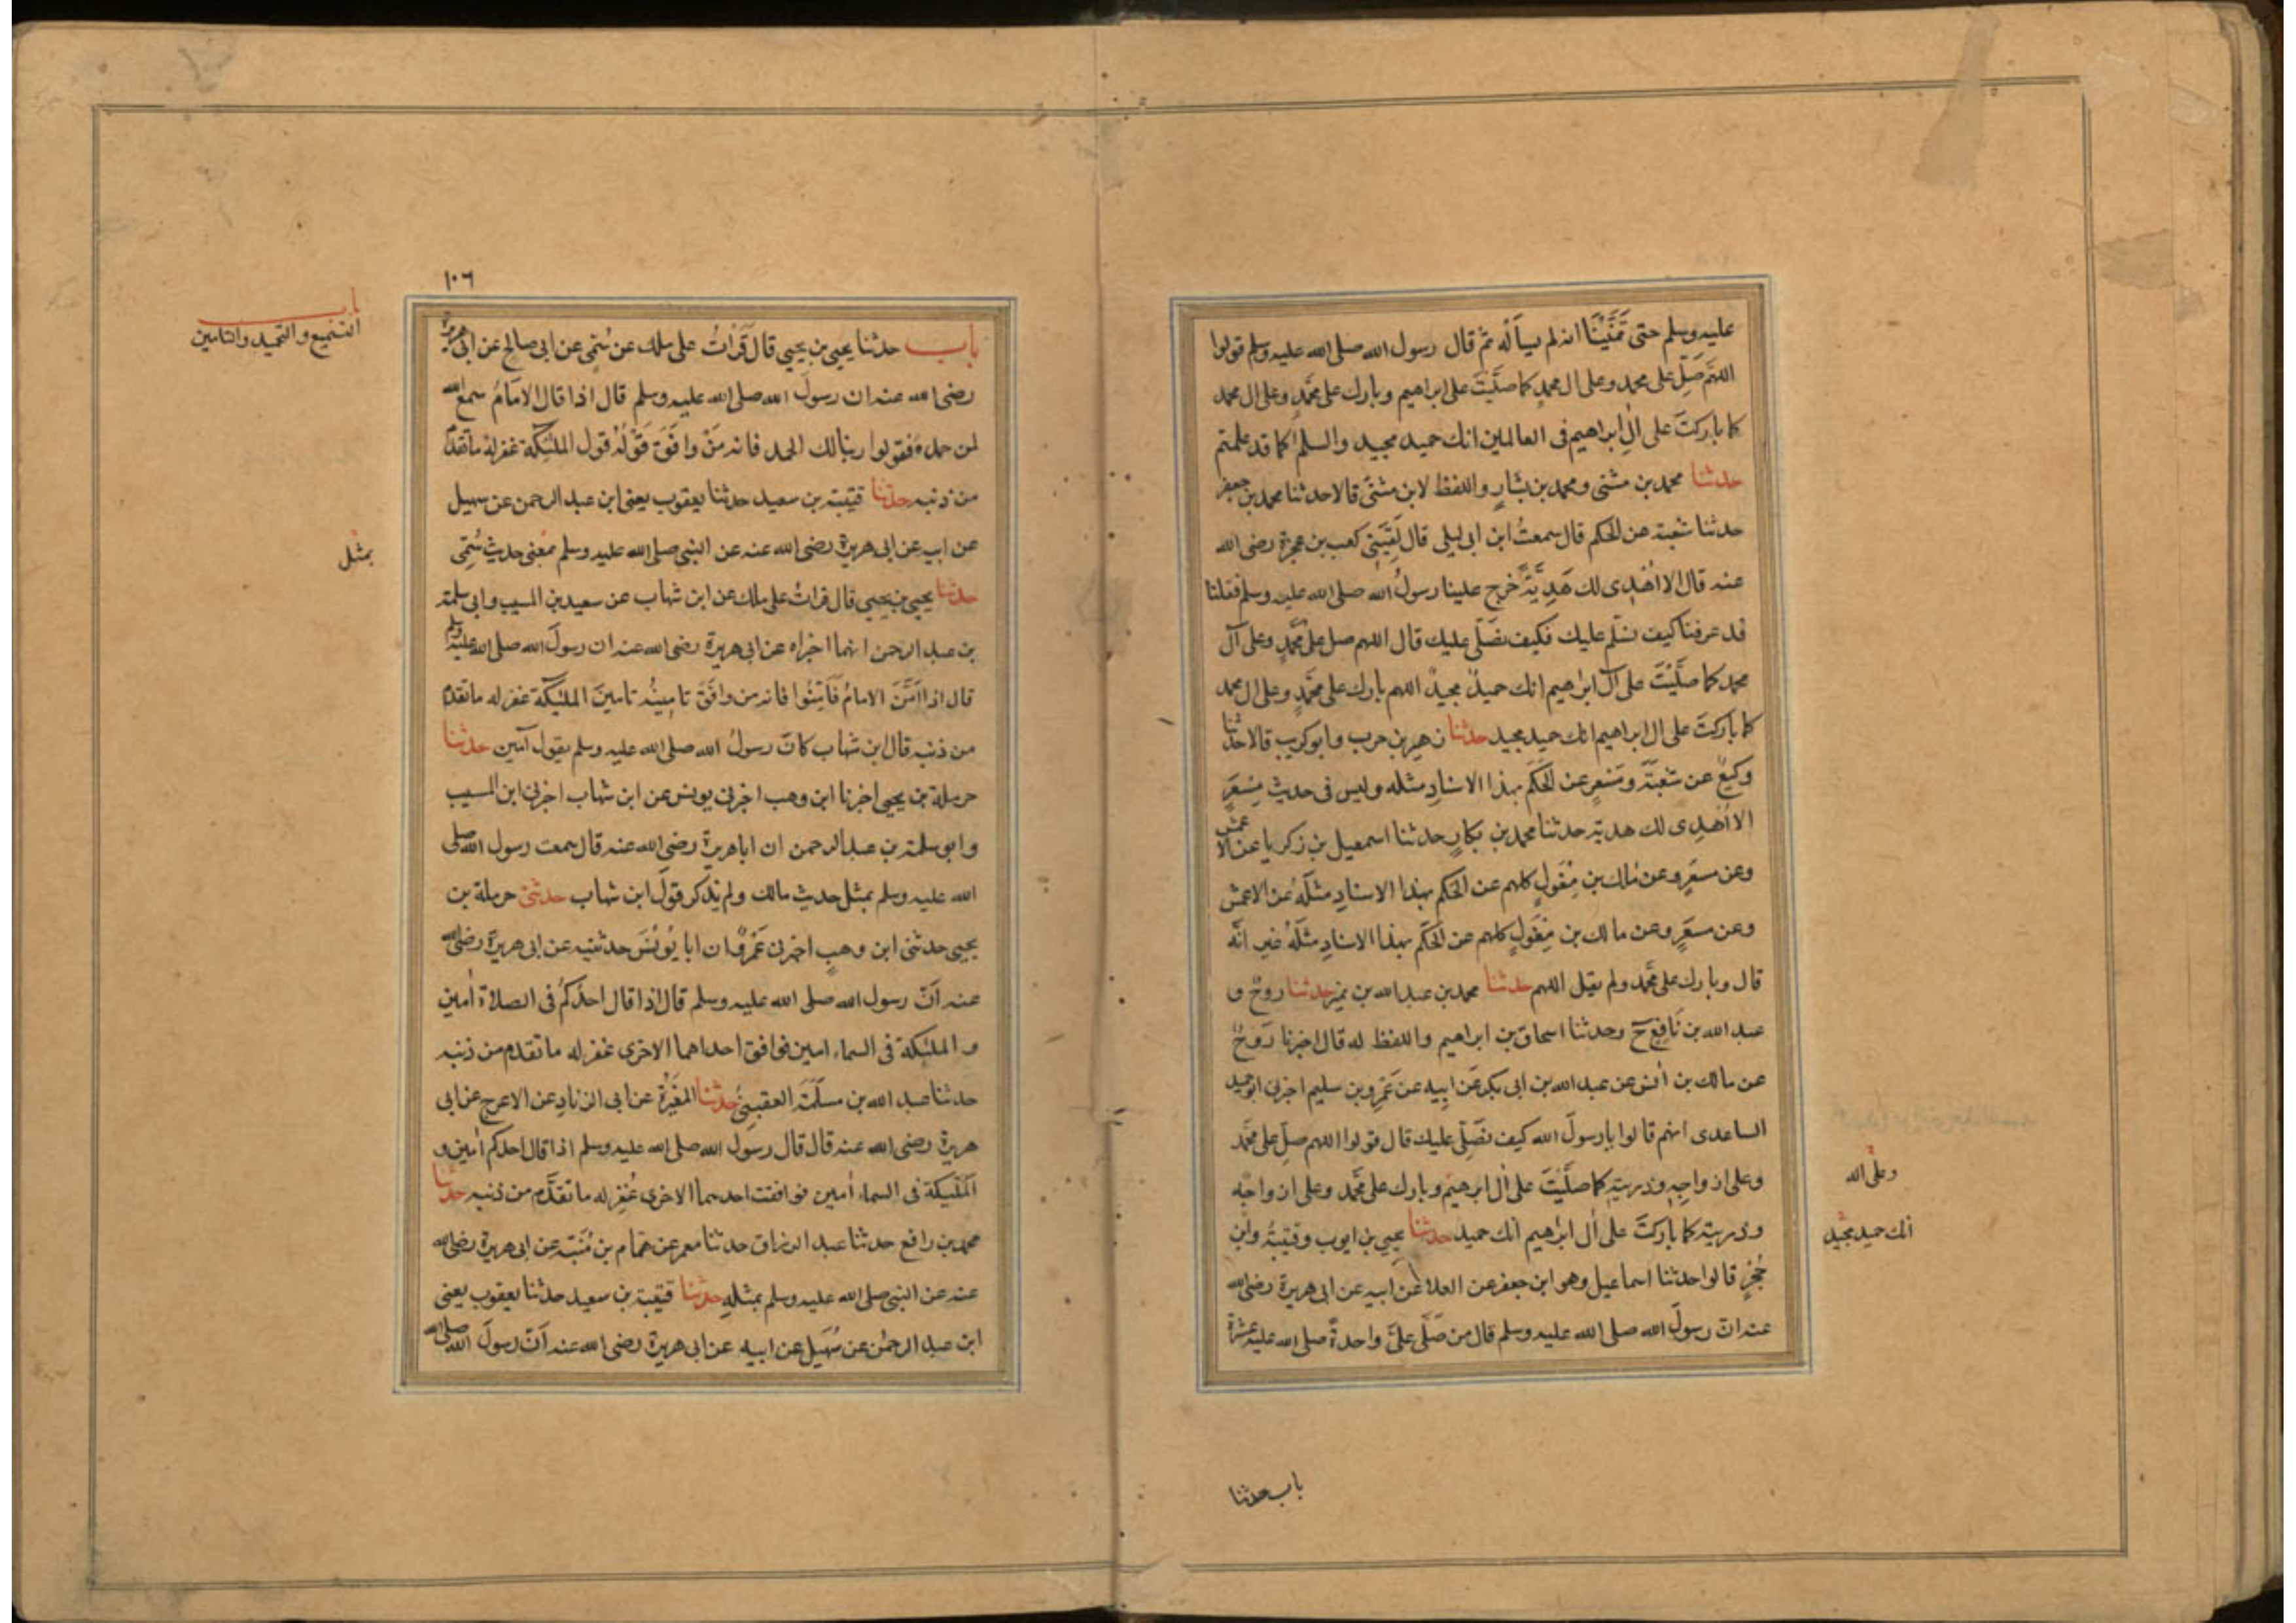 عليه وسلم حتى تَمَنَّيْنَا انه لم يسأله ثم قال رسول الله صلى الله عليه وسلم قولوا
اللهم صَلِّ على محمد وعلى ال محمد كما صلَّيتَ على ابراهيم وبارك على محمد وعلى ال محمد
كما باركتَ على الِ ابراهيم فى العالمين انك حميد مجيد والسلم كما قد علمتم
حدثنا محمد بن مثنى ومحمد بن بشارٍ واللفظ لابن مثنَّى قالا حدثنا محمد بن جعفر
حدثنا شعبة عن الحكم قال سمعتُ ابن ابى ليلى قال لَقِيَنِى كعب بن عجرة رضى الله
عنه قال الا اُهْدِى لك هَدِيَّةً خرج علينا رسولُ الله صلى الله عليه وسلم فقلنا
قد عرفنا كيف نسلّم عليك فكيف نصَلّى عليك قال اللهم صل على محمّدٍ وعلى آل
محمد كما صلَّيْتَ على آل ابراهيم انك حميدٌ مجيدٌ اللهم بارك على محمّدٍ وعلى ال محمد
كما باركتَ على ال ابراهيم انك حميد مجيد حدثنا زهير بن حرب وابو كريب قالا حدثنا
وكيعٌ عن شعبَةَ ومِسْعرٍ عن الحَكَم بهذا الاسنادِ مثله وليس فى حديث مِسْعَرٍ
الا اُهْدِى لك هدية حدثنا محمد بن بكارٍ حدثنا اسمعيل بن زكريا عن الاعمش
وعن مسعَرٍ وعن مالك بن مِغْوَلٍ كلهم عن الحَكم بهذا الاسنادِ مثلَهُ عن الاعمش
وعن مسعَرٍ وعن مالك بن مِغْوَلٍ كلهم عن الحَكَم بهذا الاسنادِ مثلَهُ غير انّه
قال وبارك على محمّد ولم يقل اللهم حدثنا محمد بن عبد الله بن نمير حدثنا روحٌ و
عبد الله بن نَافِعٍ ح وحدثنا اسحاق بن ابراهيم واللفظ له قال اخبرنا رَوحٌ
عن مالك بن أنس عن عبد الله بن ابى بكر عن ابيه عن عَمْرِو بن سليم اخبرنى ابو حميد
الساعدى انهم قالوا يا رسولَ الله كيف نصَلّى عليك قال قولوا اللهم صلِ على محمّد
وعلى ازواجِهِ وذريته كما صلَّيْتَ على ال ابرهيم وبارك على محمّد وعلى ازواجه
وذريته كما باركتَ على ال ابراهيم انك حميد حدثنا يحيى بن ايوب وقتيبةُ وابن
حُجْرٍ قالوا حدثنا اسماعيل وهو ابن جعفر عن العلا عن ابيه عن ابى هريرة رضى الله
عنه انّ رسولَ الله صلى الله عليه وسلم قال من صَلّى علىّ واحدةً صلى الله عليه عشرة
انك حميد مجيد
باب حدثنا
١٠٦
باب
التسميع والتحميد والتامين
باب حدثنا يحيى بن يحيى قال قَرَاْتُ على ملك عن سُمَىٍ عن ابى صالح عن ابى هريرة
رضى الله عنه ان رسولَ الله صلى الله عليه وسلم قال اذا قال الامَامُ سمع الله
لمن حمده فقولوا ربنا لك الحمد فانه مَنْ وافَقَ قَوْلُهُ قول المليكة غفر له ما تقدم
من ذنبه حدثنا قتيبة بن سعيد حدثنا يعقوب يعنى ابن عبد الرحمن عن سهيل
عن ابيه عن ابى هريرة رضى الله عنه عن النبى صلى الله عليه وسلم بمعنى حديث سُمَىٍ
بمثل
حدثنا يحيى بن يحيى قال قرات على ملك عن ابن شهاب عن سعيد بن المسيب وابى سلمة
بن عبد الرحمن انهما اخبراه عن ابى هريرة رضى الله عنه ان رسولَ الله صلى الله عليه وسلم
قال اذا اَمَّنَ الامامُ فَاَمِّنُوا فانه من وافَقَ تامِينُه تامينَ المليكة غفر له ما تقدم
من ذنبه قال ابن شهاب كانَ رسولُ الله صلى الله عليه وسلم يقول آمين حدثنا
حرملة بن يحيى اخبرنا ابن وهب اخبرنى يونس عن ابن شهاب اخبرنى ابن المسيب
وابو سلمة بن عبد الرحمن ان ابا هريرة رضى الله عنه قال سمعت رسول الله صلى
الله عليه وسلم بمثل حديث مالك ولم يذكر قولَ ابن شهاب حدثنى حرملة بن
يحيى حدثنى ابن وهبٍ اخبرنى عَمْرٌو ان ابا يُونُسَ حدثنيه عن ابى هريرة رضى الله
عنه اَنّ رسول الله صلى الله عليه وسلم قال اذا قال احدُكُم فى الصلاة اٰمين
و المليكة فى السماء امين فوافق احداهما الاخرى غفر له ما تقدم من ذنبه
حدثنا عبد الله بن مسلَمَة القعنبىّ حدثنا المغيرة عن ابى الزنادِ عن الاعرج عن ابى
هريرة رضى الله عنه قال قال رسول الله صلى الله عليه وسلم اذا قال احدكم اٰمين و
المليكة فى السماء اٰمين فوافقت احدهما الاخرى غُفِر له ما تقدَّم من ذنبه حدثنا
محمد بن رافع حدثنا عبد الرزاق حدثنا معمر عن همّام بن مُنَبّه عن ابى هريرة رضى الله
عنه عن النبى صلى الله عليه وسلم بمثله حدثنا قتيبة بن سعيد حدثنا يعقوب يعنى
ابن عبد الرحمٰن عن سُهَيل عن ابيه عن ابى هريرة رضى الله عنه اَنّ رسولَ الله صلى الله